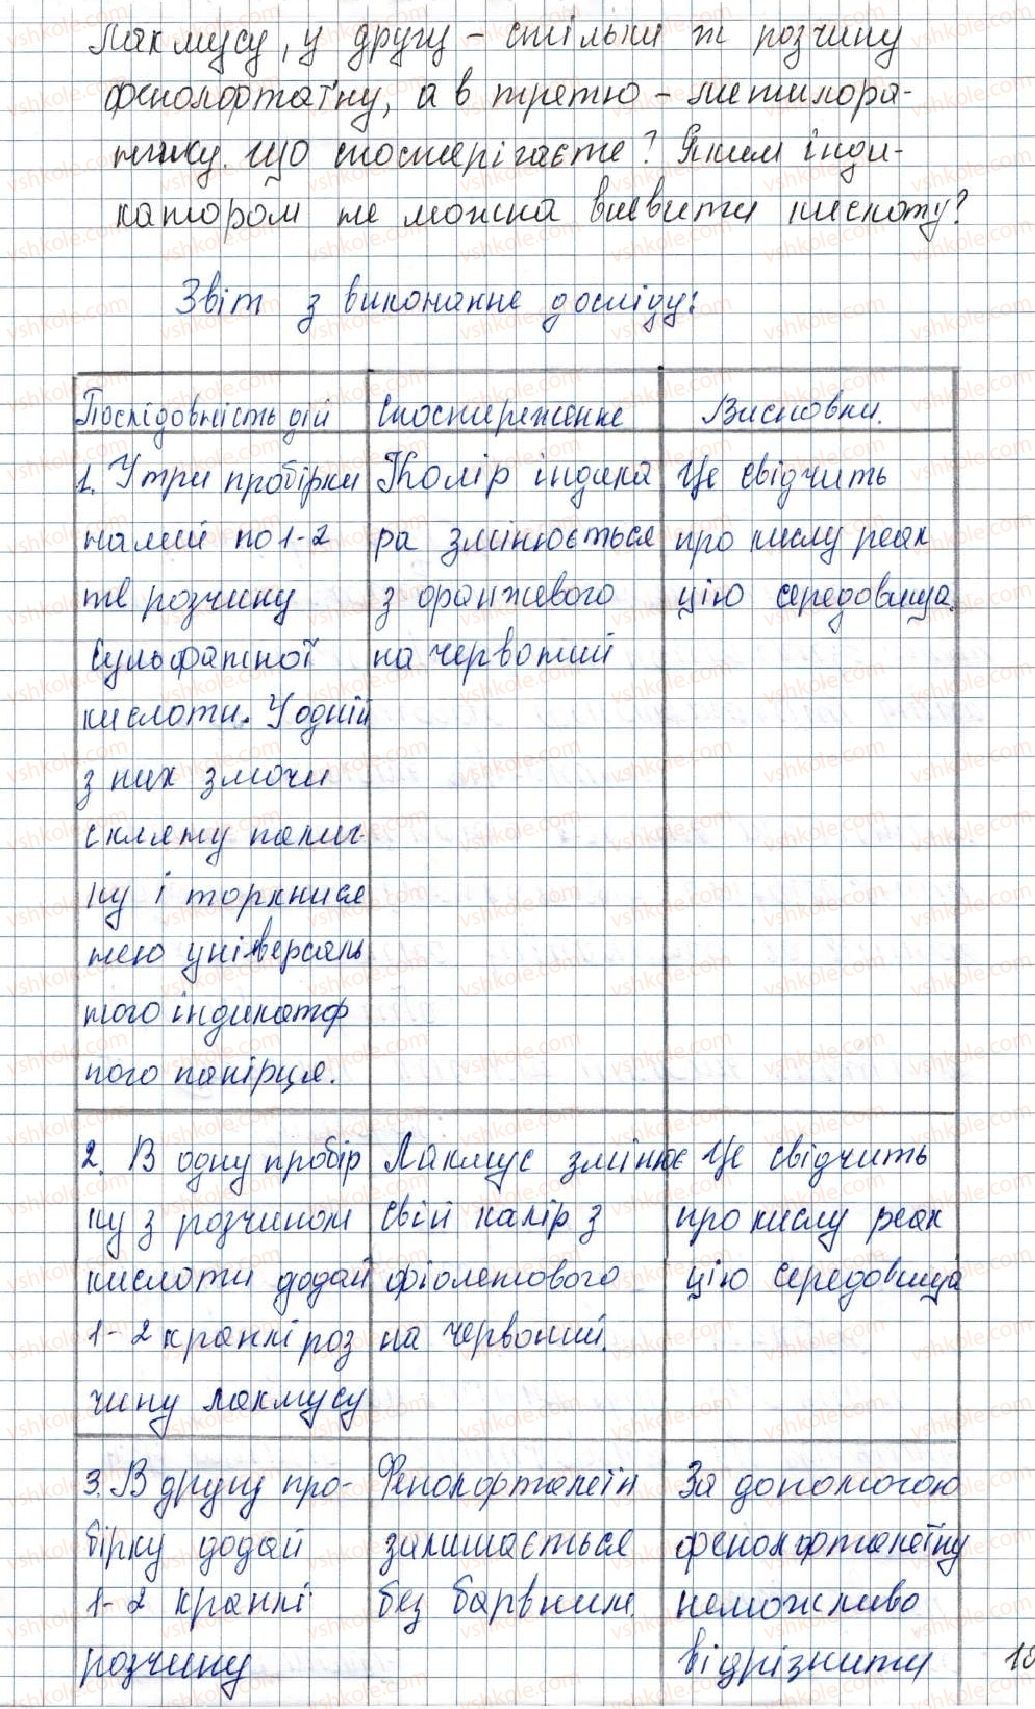 лакмусу, у другу - стільки ж розчину
фенолфтаїну, а в третю - метилора-
нжу. Що спостерігаєте? Яким інди-
катором не можна виявити кислоту?
Звіт з виконання досліду:
Послідовність дій
Спостереження
Висновки.
1. У три пробірки
налий по 1-2
мл розчину
сульфатної
кислоти. У одній
з них змочи
скляну палич-
ку і торкнися
нею універсаль
ного індикатор
ного папірця.
Колір індика
ра змінюється
з оранжевого
на червоний
Це свідчить
про кислу реак
цію середовища.
2. В одну пробір
ку з розчином
кислоти додай
1-2 краплі роз
чину лакмусу
Лакмус змінює
свій калір з
фіолетового
на червоний.
Це свідчить
про кислу реак
цію середовища
3. В другу про-
бірку додай
1-2 краплі
розчину
Фенолфталеїн
залишається
без барвним.
За допомогою
фенолфталеїну
неможливо
відрізнити